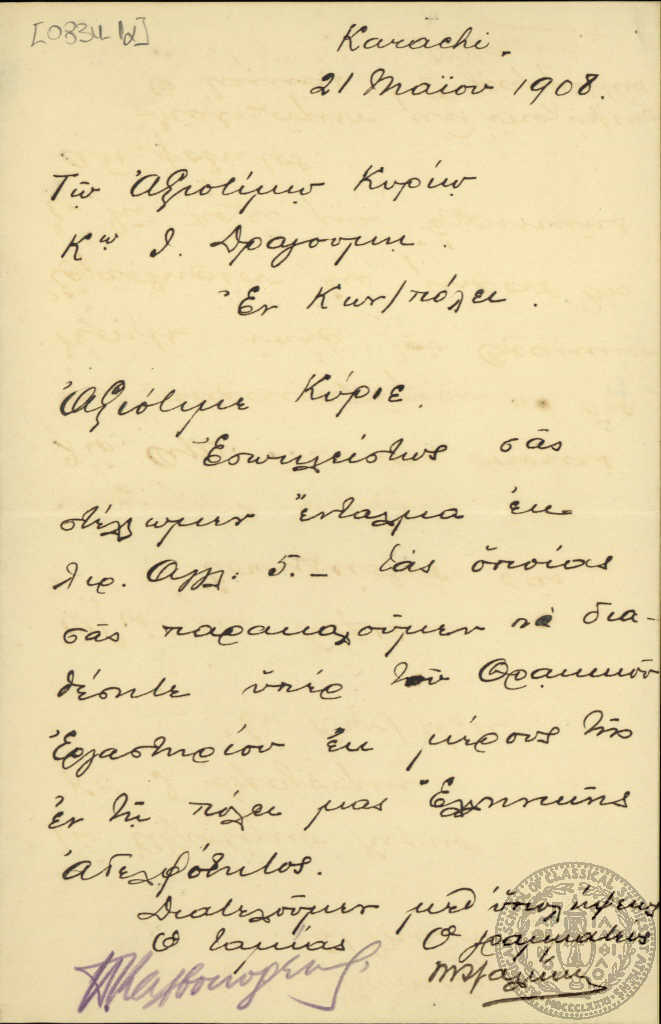 [0834 α]
Karachi.
21 Μαΐου 1908.
Τῷ Ἀξιοτίμῳ Κυρίῳ
Κῳ Ι. Δραγούμη.
Ἐν Κων/πόλει.
Ἀξιότιμε Κύριε.
Ἐσωκλείστως σᾶς
στέλλωμεν ἔνταλμα ἐκ
λιρ. Αγγλ: 5.– τὰς ὁποίας
σᾶς παρακαλοῦμεν νὰ δια-
θέσητε ὑπέρ τοῦ Θρακικοῦ
Ἐργαστηρίου ἐκ μέρους τῆς
ἐν τῇ πόλει μας Ἑλληνικῆς
Ἀδελφότητος.
Διατελοῦμεν μεθ' ὑπολήψεως
Ὁ ταμίας Ὁ γραμματεύς
MDCCCLXXXI